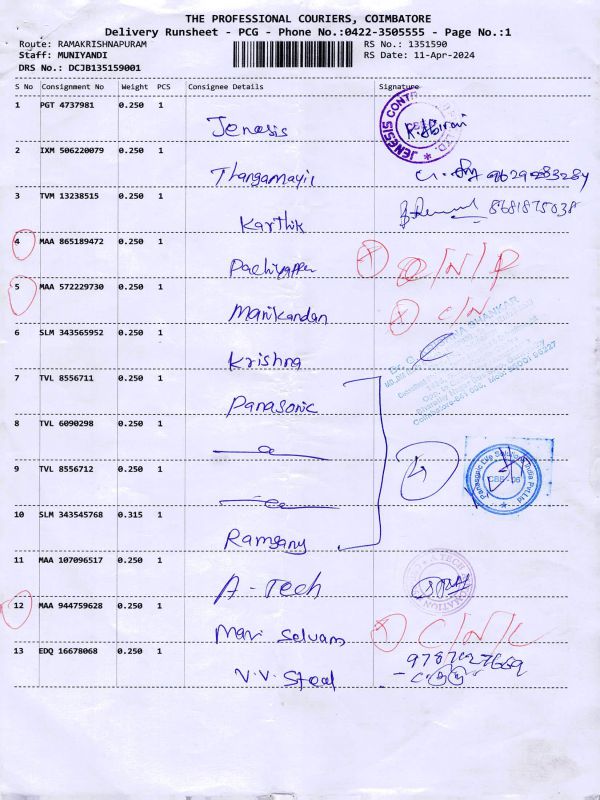 THE PROFESSIONAL COURIERS, COIMBATORE
Delivery Runsheet - PCG - Phone No.:0422-3505555 - Page No.:1
Route: RAMAKRISHNAPURAM RS No.: 1351590
Staff: MUNIYANDI RS Date: 11-Apr-2024
DRS No.: DCJB135159001
S No Consignment No Weight PCS Consignee Details Signature
1 PGT 4737981 0.250 1
Jenesis
JENESIS
2 IXM 506220079 0.250 1
Thangamayil 9629283284
3 TVM 13238515 0.250 1
Karthik 8681875038
4 MAA 865189472 0.250 1
Pachiyappan
5 MAA 572229730 0.250 1
Manikandan C/N
6 SLM 343565952 0.250 1
Krishna
7 TVL 8556711 0.250 1
Panasonic
8 TVL 6090298 0.250 1
9 TVL 8556712 0.250 1
Panasonic Life Solutions India Pvt Ltd
10 SLM 343545768 0.315 1
4
Ramsamy
11 MAA 107096517 0.250 1
A-Tech
12 MAA 944759628 0.250 1
Mari Selvam C/N/L
13 EDQ 16678068 0.250 1
V.V. Steel